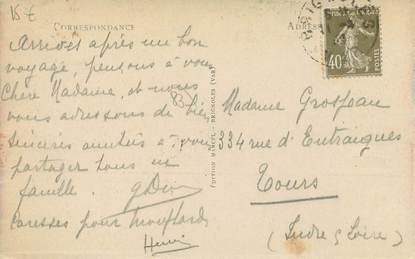 15 €
CORRESPONDANCE
ADRESSE
Arrivés après un bon
voyage, pensons à vous
Chère Madame, et nous
vous adressons de bien
sincères amitiés à vous
partager tous en
famille.
Caresses pour Moustard
Henri
EDITION BRIGNOLES (VAR)
40
Madame Grospeau
334 rue d'Entraigues
Tours
(Indre & Loire)